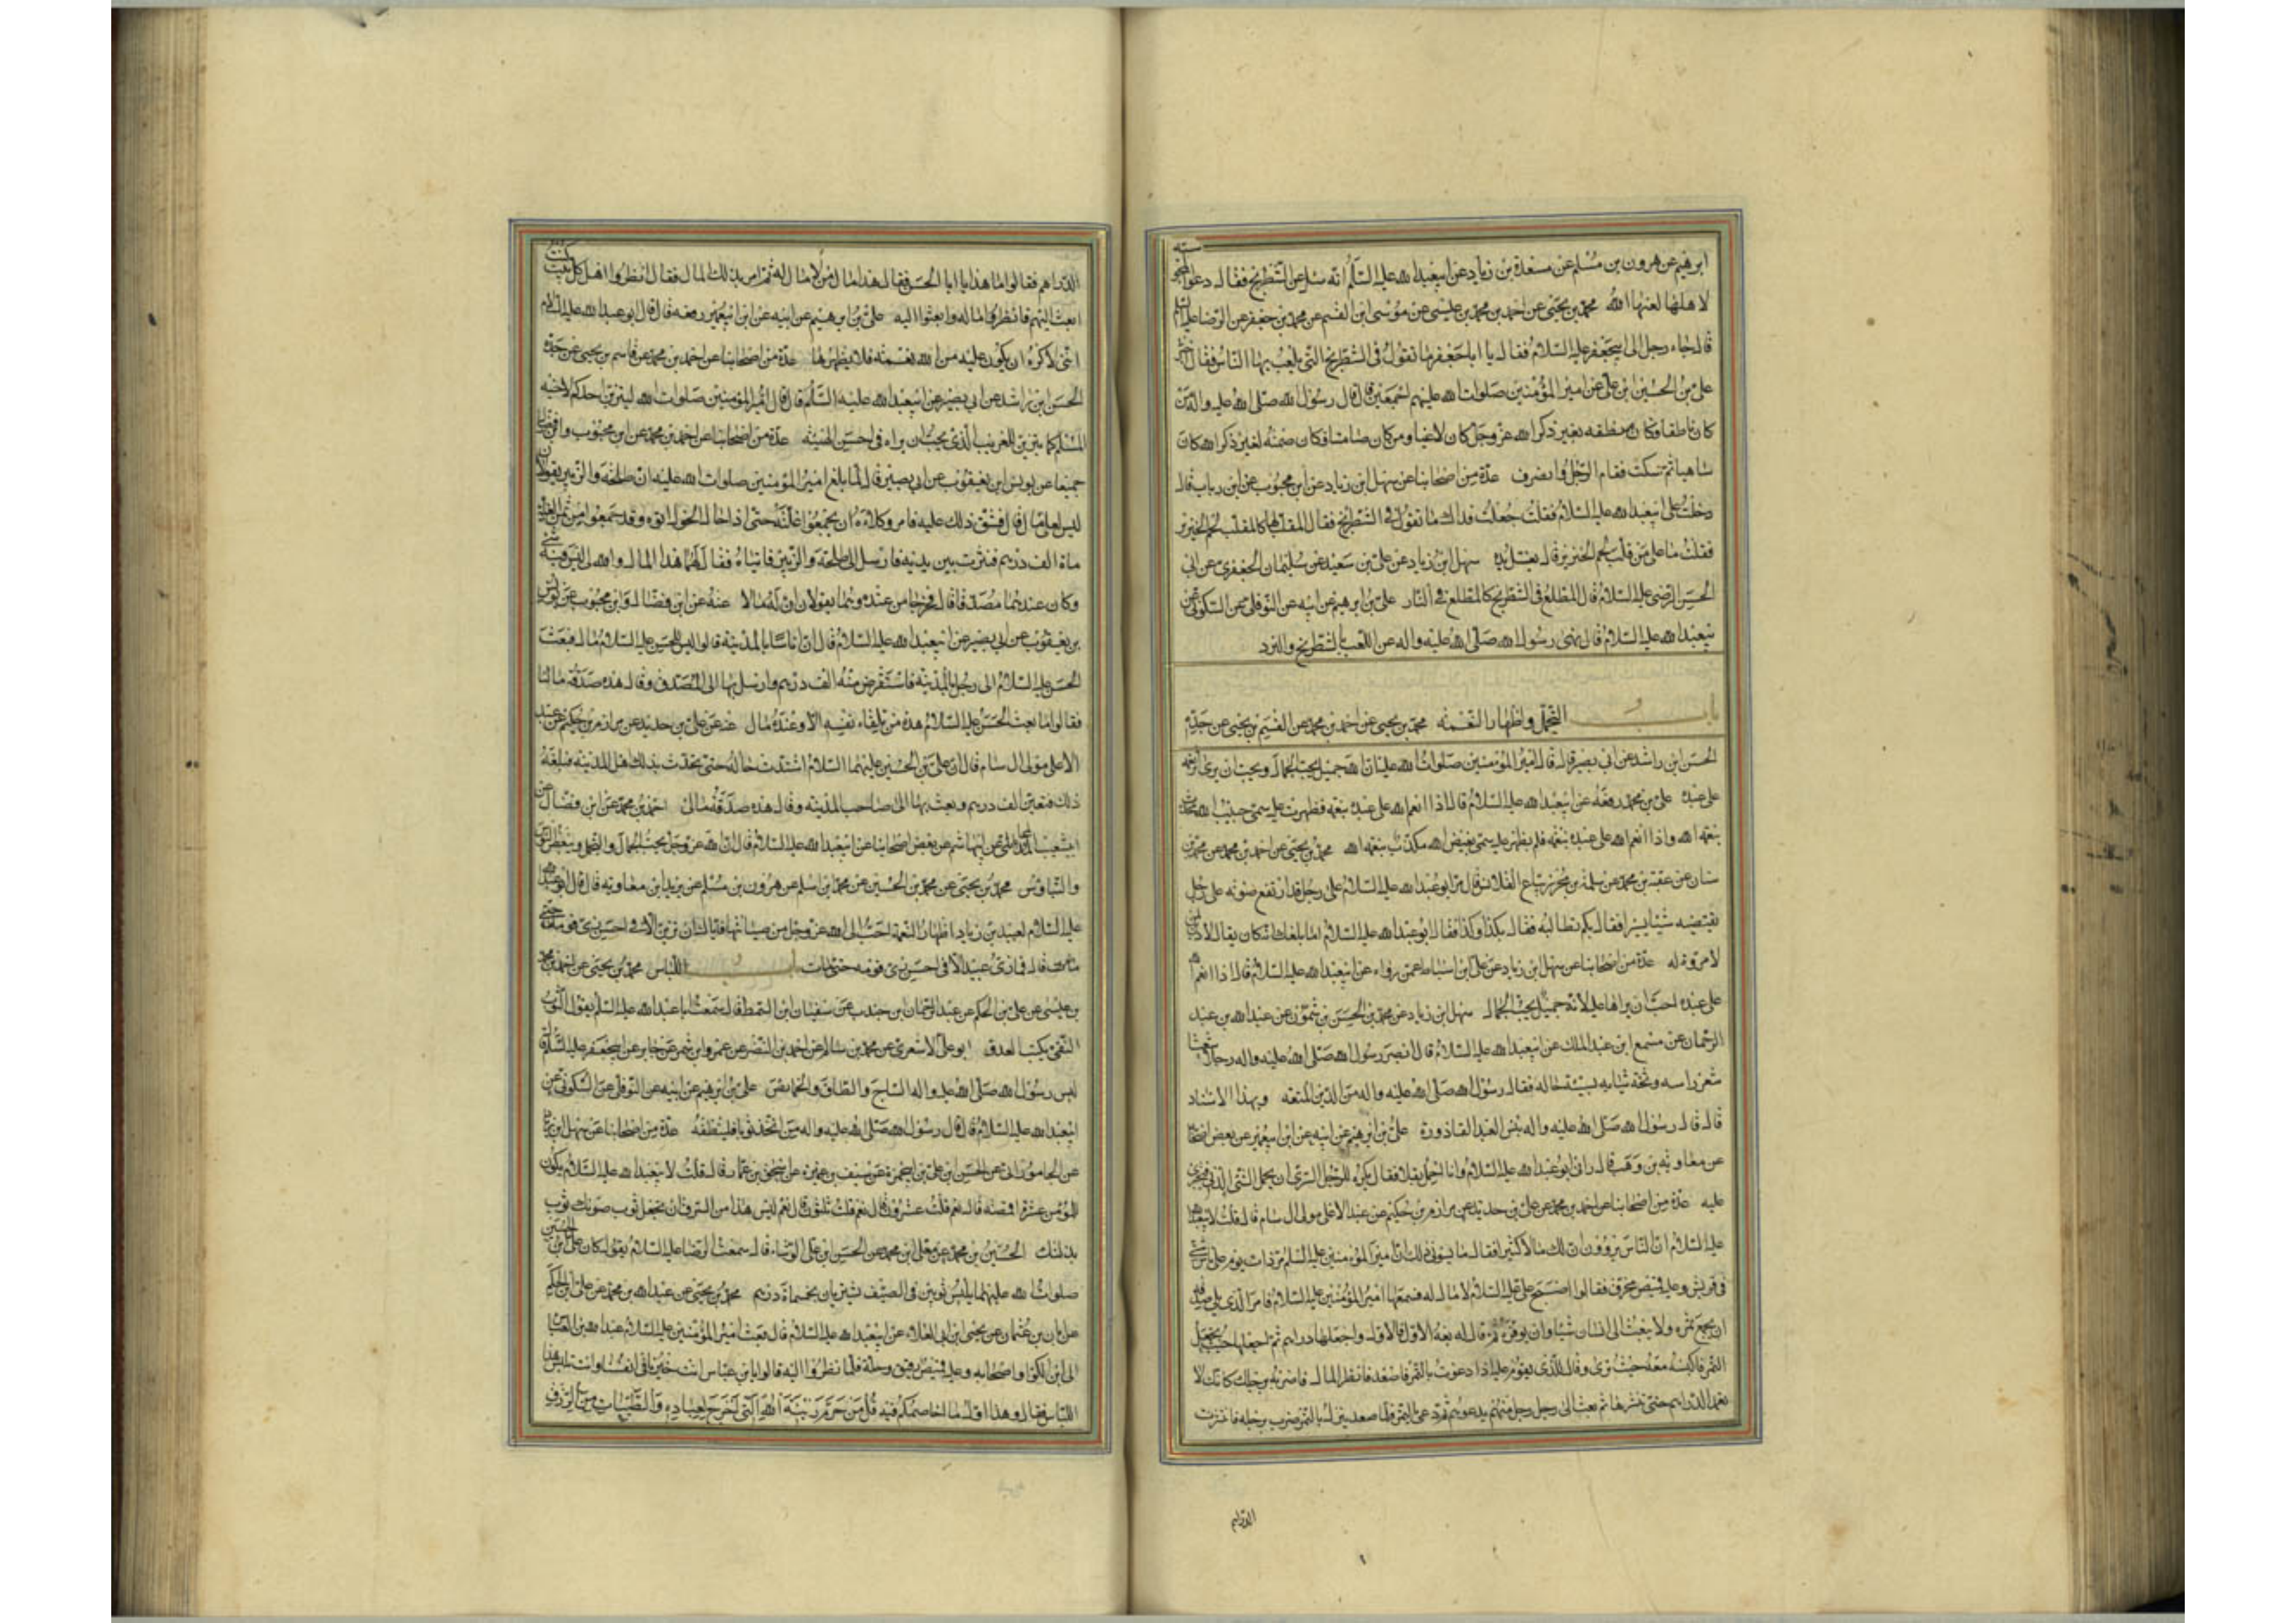 ابرهيم عن هرون بن مسلم عن مسعدة بن زياد عن ابيعبدالله عليه السلم انه سئل عن الشطرنج فقال دعوا المجوسية
لاهلها لعنها الله محمد بن يحيى عن احمد بن محمد بن عيسى عن موسى ابن القسم عن محمد بن جعفر عن الرضا عليه السلم
قال جاء رجل الى ابيجعفر عليه السلام فقال يا ابا جعفر ما تقول فى الشطرنج التى يلعب بها الناس فقال
على بن الحسين ابن على عن امير المؤمنين صلوات الله عليهم اجمعين قال قال رسول الله صلى الله عليه واله من
كان ناطقا وكان منطقه بغير ذكر الله عز وجل كان لاغيا ومن كان صامتا فكان صمته لغير ذكر الله كان
ساهيا ثم سكت فقام الرجل وانصرف عدة من اصحابنا عن سهل ابن زياد عن ابن محبوب عن ابن رباب قال
دخلت على ابيعبدالله عليه السلام فقلت جعلت فداك ما تقول فى الشطرنج فقال المقلب لها كالمقلب لحم الخنزير
فقلت ما على من قلب لحم الخنزير قال يغسل يده سهل ابن زياد عن على بن سعيد عن سليمان الجعفرى عن ابى
الحسن الرضى عليه السلام قال المطلع فى الشطرنج كالمطلع فى النار على بن ابرهيم عن ابيه عن النوفلى عن السكونى عن
ابيعبدالله عليه السلام قال نهى رسول الله صلى الله عليه واله عن اللعب بالشطرنج والنرد
باب التجمل واظهار النعمه محمد بن يحيى عن احمد بن محمد عن القسم بن يحيى عن جده
الحسن ابن راشد عن ابى بصير قال قال امير المؤمنين صلوات الله عليه ان الله جميل يحب الجمال ويحب ان يرى اثر نعمه
على عبده على بن محمد رفعه عن ابيعبدالله عليه السلام قال اذا انعم الله على عبده بنعمه فظهرت عليه سمى حبيب الله محدث
بنعمه الله واذا انعم الله على عبده بنعمه فلم يظهر عليه سمى بغيض الله مكذب بنعمه الله محمد بن يحيى عن احمد بن محمد عن محمد بن
سنان عن عقبة بن محمد عن سلمة بن محرز بياع القلانس قال مر ابو عبدالله عليه السلام على رجل قد ارتفع صوته على رجل
يقتضيه شيئا يسيرا فقال بكم تطالبه فقال بكذا وكذا فقال ابو عبدالله عليه السلام اما بلغك انه كان يقال لا دين لمن
لا مروة له عدة من اصحابنا عن سهل ابن زياد عن على ابن اسباط عمن رواه عن ابيعبدالله عليه السلام قال اذا انعم الله
على عبده احب ان يراها عليه لانه جميل يحب الجمال سهل ابن زياد عن محمد بن الحسن بن شمون عن عبدالله بن عبد
الرحمان عن مسمع ابن عبد الملك عن ابيعبدالله عليه السلام قال ابصر رسول الله صلى الله عليه واله رجلا شعثا
شعر راسه وسخه ثيابه سيئة حاله فقال رسول الله صلى الله عليه واله من الدين المتعه وبهذا الاسناد
قال قال رسول الله صلى الله عليه واله بئس العبد القاذورة على بن ابرهيم عن ابيه عن ابن ابيعمير عن بعض اصحابنا
عن معاويه بن وهب قال رانى ابو عبدالله عليه السلام وانا احمل بقلا فقال يكره للرجل السرى ان يحمل الشئ الدنى فيجترى
عليه عدة من اصحابنا عن احمد بن محمد عن على بن حديد عن مرازم بن حكيم عن عبد الاعلى مولى ال سام قال قلت لابيعبدالله
عليه السلام ان الناس يروون ان لك مالا كثيرا فقال ما يسوئنى ذلك ان امير المؤمنين عليه السلم مر ذات يوم على ناس شتى
فى قريش وعليه قميص مخرق فقالوا اصبح على عليه السلام لا مال له فسمعها امير المؤمنين عليه السلام فامر الذى يلى صدقته
ان يجمع تمره ولا يبعث الى انسان شيئا وان يوفره ثم قال له بعه الاول فالاول واجعلها دراهم ثم اجعلها حيث تجعل
التمر فاكبسه معه حيث ترى وقال للذى يقوم عليه اذا دعوت بالتمر فاصعد فانظر المال فاضربه برجلك كانك لا
تعمد الدراهم حتى تنثرها ثم بعث الى رجل رجل منهم يدعوهم ثم دعى بالتمر فلما صعد ينزل بالتمر ضرب برجله فانتثرت
الدراهم
الدراهم فقالوا ما هذا يا ابا الحسن فقال هذا مال من لا مال له ثم امر بذلك المال فقال انظروا اهل كل بيت كنت
ابعث اليهم فانظروا ماله وابعثوا اليه على بن ابرهيم عن ابيه عن ابن ابيعمير رفعه قال قال ابو عبدالله عليه السلام
انى لاكره ان يكون عليه من الله نعمه فلا يظهرها عدة من اصحابنا عن احمد بن محمد عن قاسم بن يحيى عن جده
الحسن ابن راشد عن ابى بصير عن ابيعبدالله عليه السلم قال قال امير المؤمنين صلوات الله ليتزين احدكم لاخيه
المسلم كما يتزين للغريب الذى يحب ان يراه فى احسن الهيئه عدة من اصحابنا عن احمد بن محمد عن ابن محبوب وابن فضال
جميعا عن يونس ابن يعقوب عن ابى بصير قال لما بلغ امير المؤمنين صلوات الله عليه ان طلحة والزبير يقولان
ليس لعلى مال قال فشق ذلك عليه فامر وكلاءه ان يجمعوا غلته حتى اذا حال الحول اتوه وقد جمعوا من ثمن الغلة
ماة الف درهم فنثرت بين يديه فارسل الى طلحة والزبير فاتياه فقال لهما هذا المال والله لى ليس فيه شئ
وكان عندهما مصدقا قال فخرجا من عنده وهما يقولان ان له مالا عنه عن ابن فضال وابن محبوب عن يونس
بن يعقوب عن ابى بصير عن ابيعبدالله عليه السلام قال ان اناسا بالمدينة قالوا ليس للحسن عليه السلام مال فبعث
الحسن عليه السلام الى رجل بالمدينة فاستقرض منه الف درهم وارسل بها الى المصدق وقال هذه صدقة مالنا
فقالوا ما بعث الحسن عليه السلام هذه من تلقاء نفسه الا وعنده مال عنه عن على بن حديد عن مرازم بن حكيم عن عبد
الاعلى مولى ال سام قال ان على بن الحسين عليهما السلام اشتدت حاله حتى تحدث بذلك اهل المدينه فبلغه
ذلك فتعين الف درهم وبعث بها الى صاحب المدينه وقال هذه صدقه مالى احمد بن محمد عن ابن فضال عن
ابيشعيب المحاملى عن ابيهاشم عن بعض اصحابنا عن ابيعبدالله عليه السلام قال ان الله عز وجل يحب الجمال والتجمل ويبغض البؤس
والتباؤس محمد بن يحيى عن محمد بن الحسين عن محمد ابن سلم عن هرون بن مسلم عن بريد ابن معاويه قال قال ابو عبدالله
عليه السلام لعبيد بن زياد اظهار النعمة احب الى الله عز وجل من صيانتها فاياك ان تزين الا فى احسن زى قومك
قال فما رئى عبيد الا فى احسن زى قومه حتى مات باب اللباس محمد بن يحيى عن احمد بن محمد
بن عيسى عن على بن الحكم عن عبد الرحمان ابن جندب عن سفيان ابن السمط قال سمعت ابا عبدالله عليه السلم يقول الثوب
النقى يكبت العدو ابو على الاشعرى عن محمد بن سالم عن احمد بن النضر عن عمرو ابن شمر عن جابر عن ابيجعفر عليه السلم قال
لبس رسول الله صلى الله عليه واله الساج والطاق والخمائص على بن ابرهيم عن ابيه عن النوفلى عن السكونى عن
ابيعبدالله عليه السلام قال قال رسول الله صلى الله عليه واله من اتخذ ثوبا فلينظفه عدة من اصحابنا عن سهل ابن زياد
عن الجامورانى عن الحسن ابن على بن ابيحمزة عن سيف بن عميره عن اسحق بن عمار قال قلت لابيعبدالله عليه السلام يكون
للمؤمن عشرة اقمصه قال نعم قلت عشرون قال نعم قلت ثلثون قال نعم ليس هذا من السرف ان تجعل ثوب صونك ثوب
بذلتك الحسين بن محمد عن معلى ابن محمد عن الحسن ابن على الوشاء قال سمعت الرضا عليه السلام يقول كان على ابن الحسين
صلوات الله عليهما يلبس ثوبين فى الصيف يشتريان بخمسماة درهم محمد بن يحيى عن عبدالله بن محمد عن على بن الحكم
عن ابان بن عثمان عن يحيى ابن ابى العلاء عن ابيعبدالله عليه السلام قال بعث امير المؤمنين عليه السلام عبدالله بن العباس
الى ابن الكوا واصحابه وعليه قميص رقيق وحلة فلما نظروا اليه قالوا يا بن عباس انت خيرنا فى انفسنا وانت تلبس هذا
اللباس فقال وهذا اول ما اخاصمكم فيه قل من حرم زينة الله التى اخرج لعباده والطيبات من الرزق